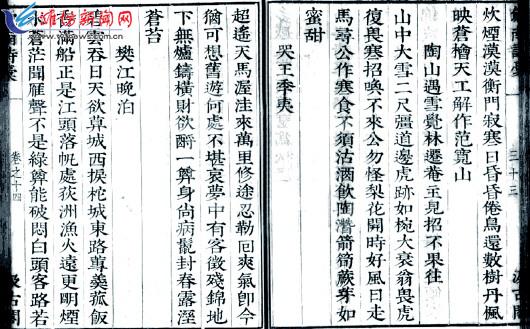 三十三
汲古閣
炊煙漠漠衡門寂寒日昏昏倦鳥還數樹丹楓
映蒼檜天工解作范寬山
陶山遇雪覺林遷菴主見招不果往
山中大雪二尺彊道邊虎跡如椀大衰翁畏虎
復畏寒招喚不來公勿怪梨花開時好風日走
馬尋公作寒食不須沽酒飲陶潛箭筍蕨芽如
蜜甜
哭王季夷
超遙天馬渥洼來萬里修途忍勒回爽氣卽今
猶可想舊遊何處不堪哀夢中有客徵殘錦地
下無爐鑄橫財欲酹一尊身尚病鬣封春露溼
蒼苔
樊江晚泊
雲吞日天欲莫城西捩柂城東路蓴羹菰飯
香滿船正是江頭落帆處荻洲漁火遠更明煙
水蒼茫聞雁聲不是綠尊能破悶白頭客路若
劍南詩稾
卷之十四
汲古閣